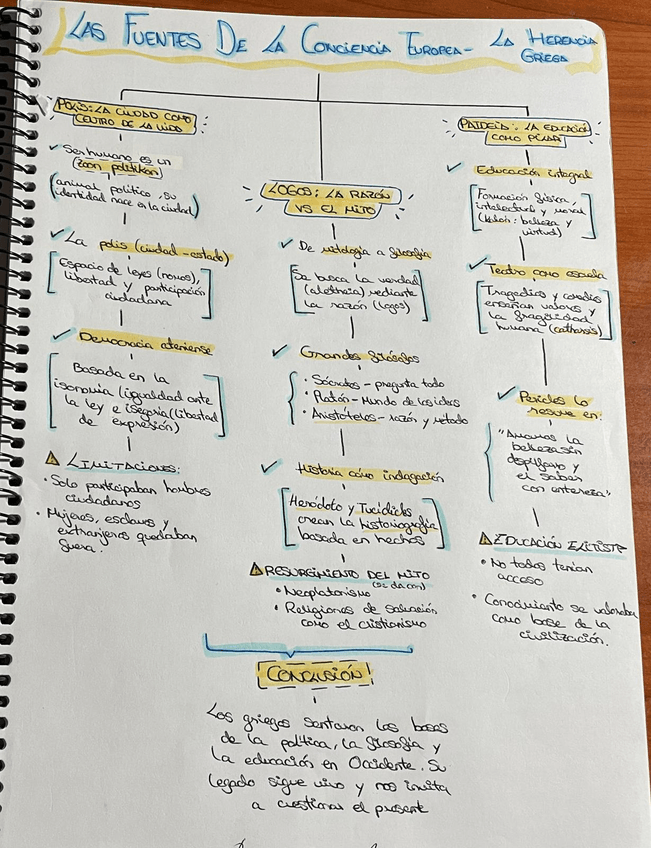 LAS FUENTES DE LA CONCIENCIA EUROPEA - LA HERENCIA
GRIEGA
POLIS: LA CIUDAD COMO
CENTRO DE LA VIDA
✓ Ser humano es un
zoon politikon
(animal político, su
identidad nace en la ciudad)
✓ La polis (ciudad-estado)
[Espacio de leyes (nomos),
libertad y participación
ciudadana]
✓ Democracia ateniense
[Basada en la
isonomía (igualdad ante
la ley e isegoria (libertad
de expresión)]
⚠ LIMITACIONES:
• Solo participaban hombres
ciudadanos
• Mujeres, esclavos y
extranjeros quedaban
fuera.
LOGOS: LA RAZÓN
VS EL MITO
✓ De mitología a filosofía
[Se busca la verdad
(aletheia) mediante
la razón (logos)]
✓ Grandes filósofos
• Sócrates - pregunta todo
• Platón - Mundo de las ideas
• Aristóteles - razón y método
✓ Historia como indagación
[Heródoto y Tucídides
crean la historiografía
basada en hechos]
⚠ RESURGIMIENTO DEL MITO
• Neoplatonismo
• Religiones de salvación
como el cristianismo
PAIDEIA: LA EDUCACIÓN
COMO PILAR
✓ Educación integral
[Formación física,
intelectual y moral
(kalón: belleza y
virtud)]
✓ Teatro como escuela
[Tragedias y comedias
enseñan valores y
la fragilidad
humana (catharsis)]
✓ Pericles lo
resume en:
"Amamos la
belleza sin
despilfarro y
el saber
con entereza"
⚠ EDUCACIÓN ELITISTA
• No todos tenían
acceso
• Conocimiento se valoraba
como base de la
civilización.
CONCLUSIÓN
Los griegos sentaron las bases
de la política, la filosofía y
la educación en Occidente. Su
legado sigue vivo y nos invita
a cuestionar el presente